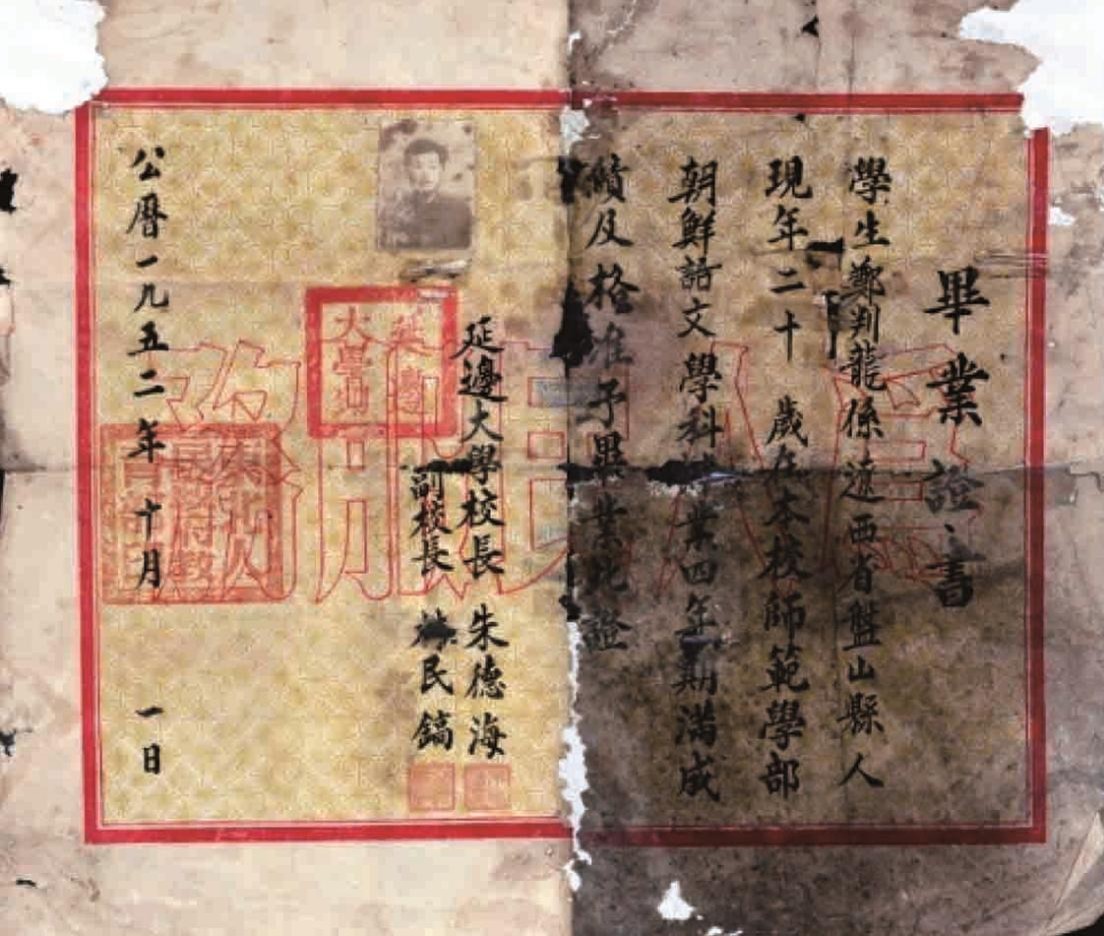 畢業證書
學生鄭判龍係遼西省盤山縣人
現年二十 歲在本校師範學部
朝鮮語文學科 業四年期滿成
績及格准予畢業此證
延邊大學校長 朱德海
副校長 林民鎬
公曆一九五二年十月 一日
延邊大學
為人民服務